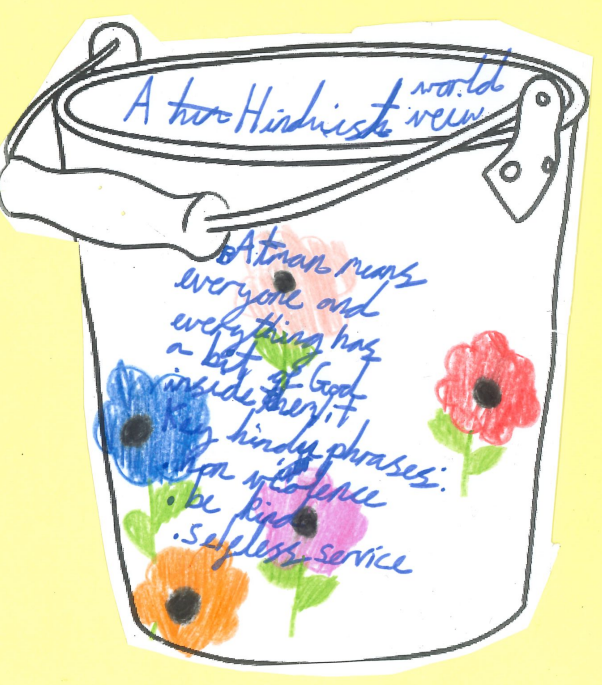 A Hinduist world
veiw
Atman means
everyone and
everything has
a bit of God
inside them/it
Key hindu phrases:
• non violence
• be kind
• selfless service